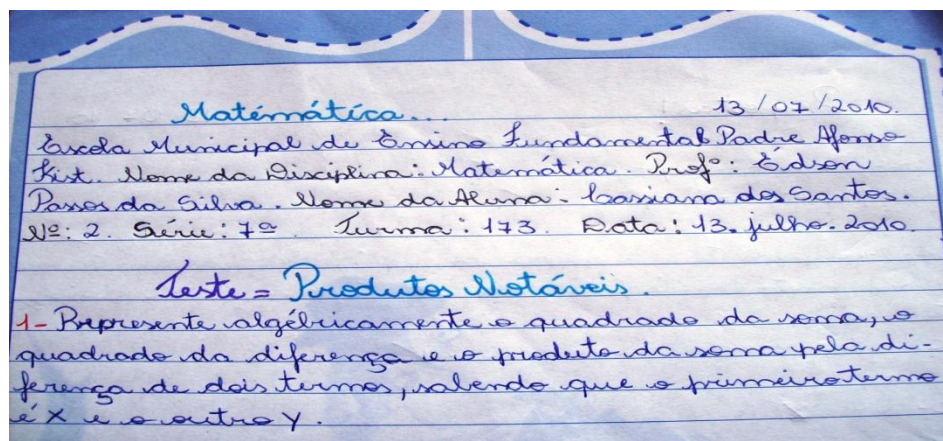 Matemática...
13/07/2010.
Escola Municipal de Ensino Fundamental Padre Afonso
Kist. Nome da Disciplina: Matemática. Profº: Édson
Passos da Silva. Nome da Aluna: Cassiana dos Santos.
Nº: 2. Série: 7ª Turma: 173. Data: 13. julho. 2010.
Teste = Produtos Notáveis.
1- Represente algébricamente o quadrado da soma, o
quadrado da diferença e o produto da soma pela di-
ferença de dois termos, sabendo que o primeiro termo
é X e o outro Y.